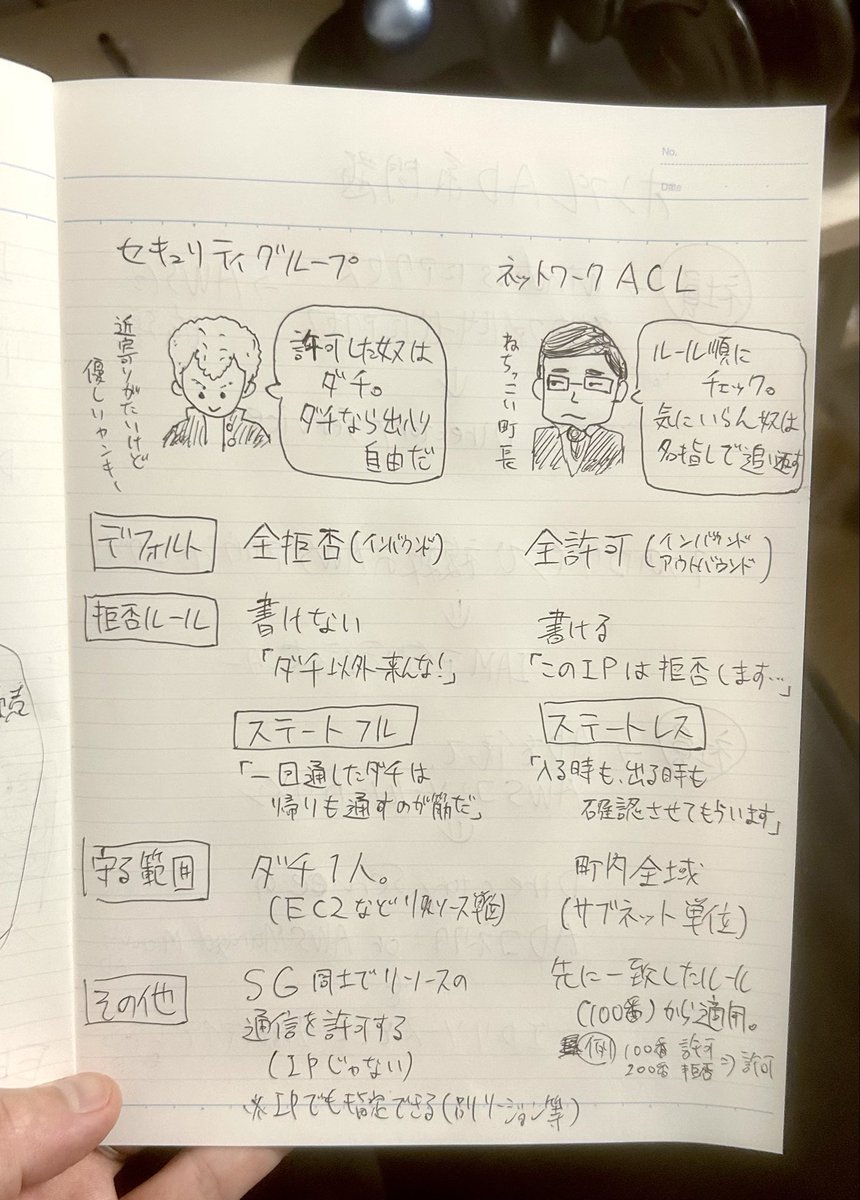 No.
Date
セキュリティグループ
近寄りがたいけど
優しいヤンキー
許可した奴は
ダチ。
ダチなら出入り
自由だ
ネットワークACL
ねちっこい町長
ルール順に
チェック。
気にいらん奴は
名指しで追い返す
デフォルト
全拒否(インバウンド)
全許可(インバウンド
アウトバウンド)
拒否ルール
書けない
「ダチ以外来んな!」
書ける
「このIPは拒否します…」
ステートフル
「一回通したダチは
帰りも通すのが筋だ」
ステートレス
「入る時も、出る時も
確認させてもらいます」
守る範囲
ダチ1人。
(EC2などリソース単位)
町内全域
(サブネット単位)
その他
SG同士でリソースの
通信を許可する
(IPじゃない)
※IPでも指定できる(別リージョン等)
先に一致したルール
(100番)から適用。
例 100番 許可
200番 拒否 ⇒ 許可